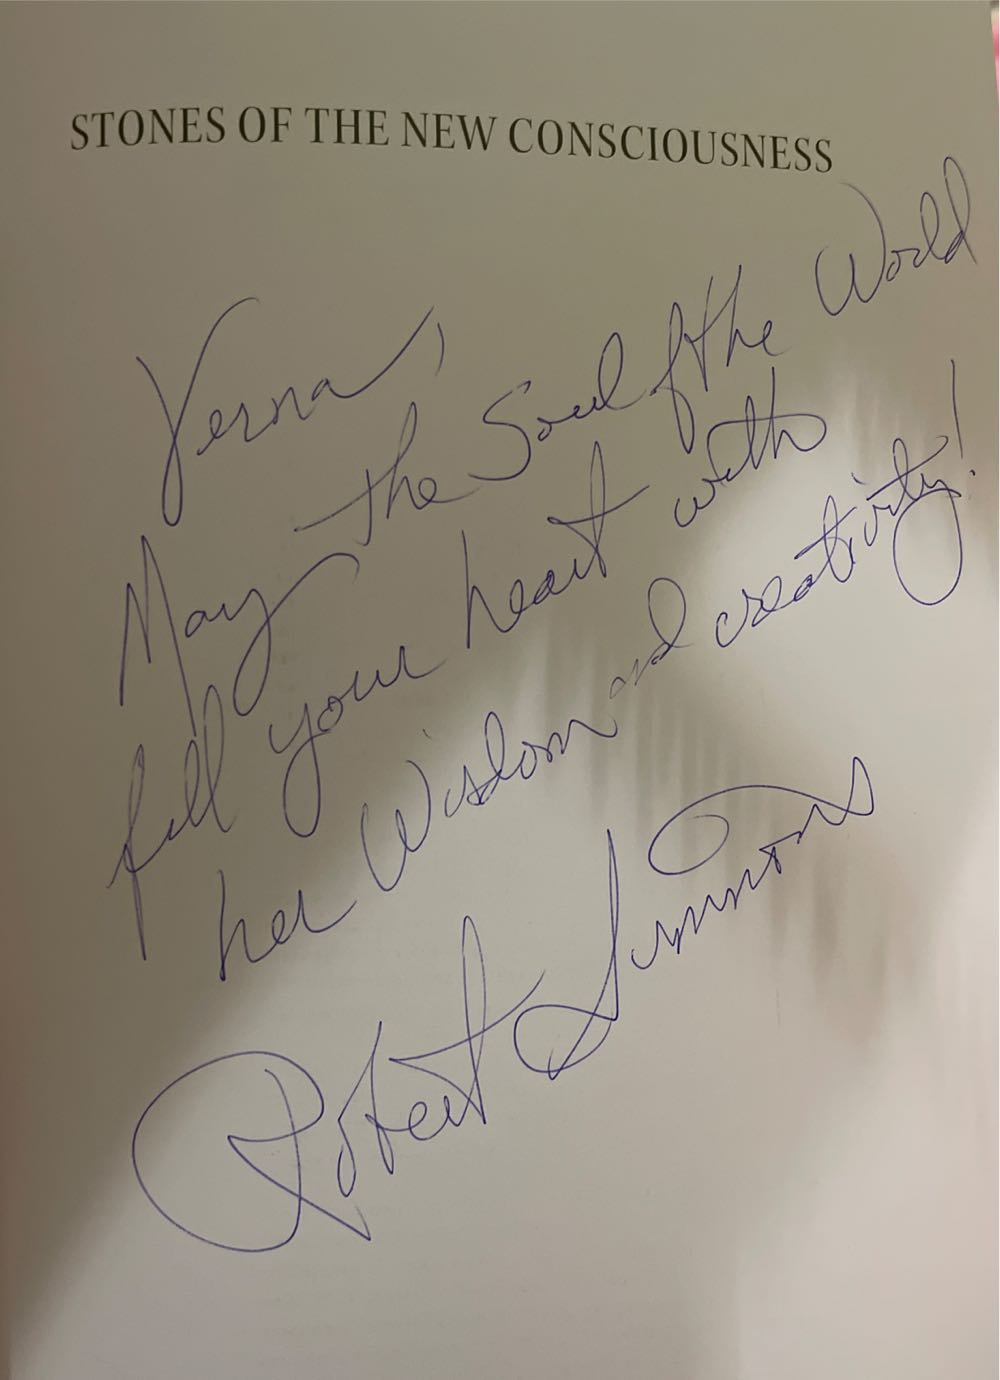 STONES OF THE NEW CONSCIOUSNESS
Verna,
May the Soul of the World
fill your heart with
her Wisdom and creativity!
Robert Simmons